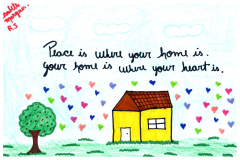 Peace is where your home is.
your home is where your heart is.
RS